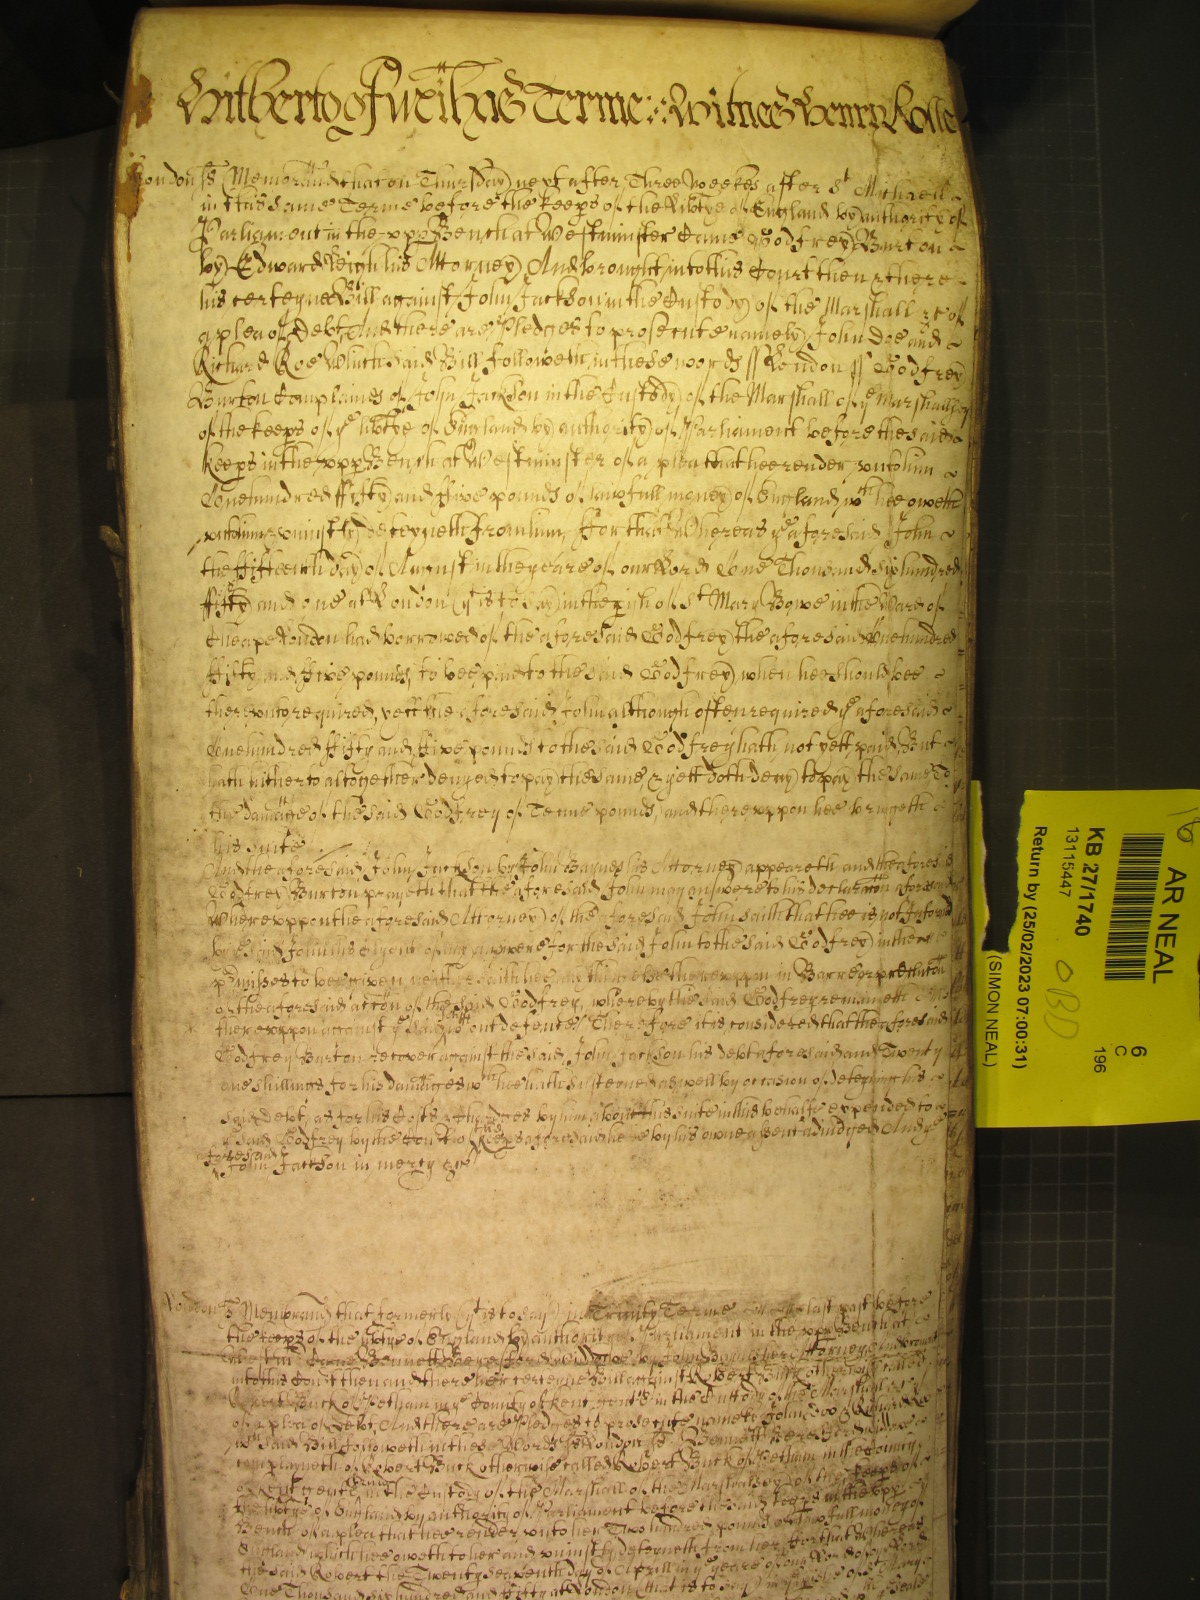 Hitherto of this Terme Witnes Henry Rolle
London ss Memorand that on Thursday next after Three Weekes after St Michaell
in this same Terme before the keeps of the libtye of England by authority of
Parliament in the upp Bench at Westminster Came Godfrey Burton
by Edward Leigh his Attorney And brought into this Court then & there
his certeyne Bill against John Jackson in the Custody of the Marshall &c of
a plea of Debt And there are Pledges to prosecute namely John Doe and
Richard Roe Which said Bill followeth in these words ss London ss Godfrey
Burton Complaines of John Jackson in the Custody of the Marshall of ye Marshallsey
of the keeps of ye libtye of England by authority of Parliament before the said
keeps in the upp Bench at Westminster of a plea that hee render unto him
One hundred ffifty and ffive pounds of lawfull money of England wch hee oweth
unto him & uniustly deteyneth from him ffor that Whereas ye aforesaid John
the ffifteenth day of August in the yeare of our Lord One Thousand sixhundred
ffifty and one at London (yt is to say) in the pish of St Mary Bowe in the Ward of
Cheape London had borrowed of the aforesaid Godfrey the aforesaid One hundred
ffifty and ffive pounds to bee paid to the said Godfrey when hee should bee
thereunto required, yett the aforesaid John although often required ye aforesaid
One hundred ffifty and ffive pounds to the said Godfrey hath not yett paid But
hath hitherto altogether denyed to pay the same, & yett doth deny to pay the same To
the damage of the said Godfrey of Tenne pounds, and thereuppon hee bringeth
his suite
And the aforesaid John Jackson by John Baynes his Attorney appeareth and the aforesaid
Godfrey Burton prayeth that the aforesaid John may answere to his declaracon aforesaid
Whereuppon the aforesaid Attorney of the aforesaid John saith that hee is not Informed
by the said John his of any answere for the said John to the said Godfrey in the
pmisses to bee given neither saith hee any thing else thereuppon in Barre or preclusion
of the aforesaid accon of the said Godfrey, whereby the said Godfrey remaineth
thereuppon against ye said John without defence Therefore it is considered that the aforesaid
Godfrey Burton recover against the said John Jackson his debt aforesaid and Twenty
one shillings for his damages wch hee hath susteyned aswell by occasion of deteyning his
said debt, as for his Costs & Charges by him about his suite in this behalfe expended to
ye said Godfrey by the Court of the keeps aforesaid here by his owne assent adiudged And ye
aforesaid John Jackson in mercy &c
London ss Memorand that formerly (yt is to say) in Trinity Terme last past before
the keeps of the libtye of England by authority of Parliament in the upp Bench at
Westmr Came Bennett Beresford Widdowe by John her Attorney And brought
into this Court then and there her certeyne Bill against Robert Buck otherwise called
Robert Buck of Petham in ye County of Kent gent in the Custody of the Marshall &c
of a plea of Debt, And there are Pledges to prosecute namely John Doe & Richard Roe
wch said Bill followeth in these Words ss London ss Bennett Beresford Widdowe
complayneth of Robert Buck otherwise called Robert Buck of Petham in the County
of Kent gent being in the Custody of the Marshall of the Marshallsey of the keeps of
the libtye of England by authority of Parliament before the said keeps in the upp
Bench of a plea that hee render unto her Two hundred pounds of lawfull money of
England which hee oweth to her and uniustly deteyneth from her, ffor that Whereas
the said Robert the Twenty Seaventh day of Aprill in ye yeare of our Lord
One Thousand sixhundred and ffifty at London (that is to say) in ye pish of St Mary
AR NEAL
6
C
196
KB 27/1740
13115447
Return by (25/02/2023 07:00:31)
(SIMON NEAL)